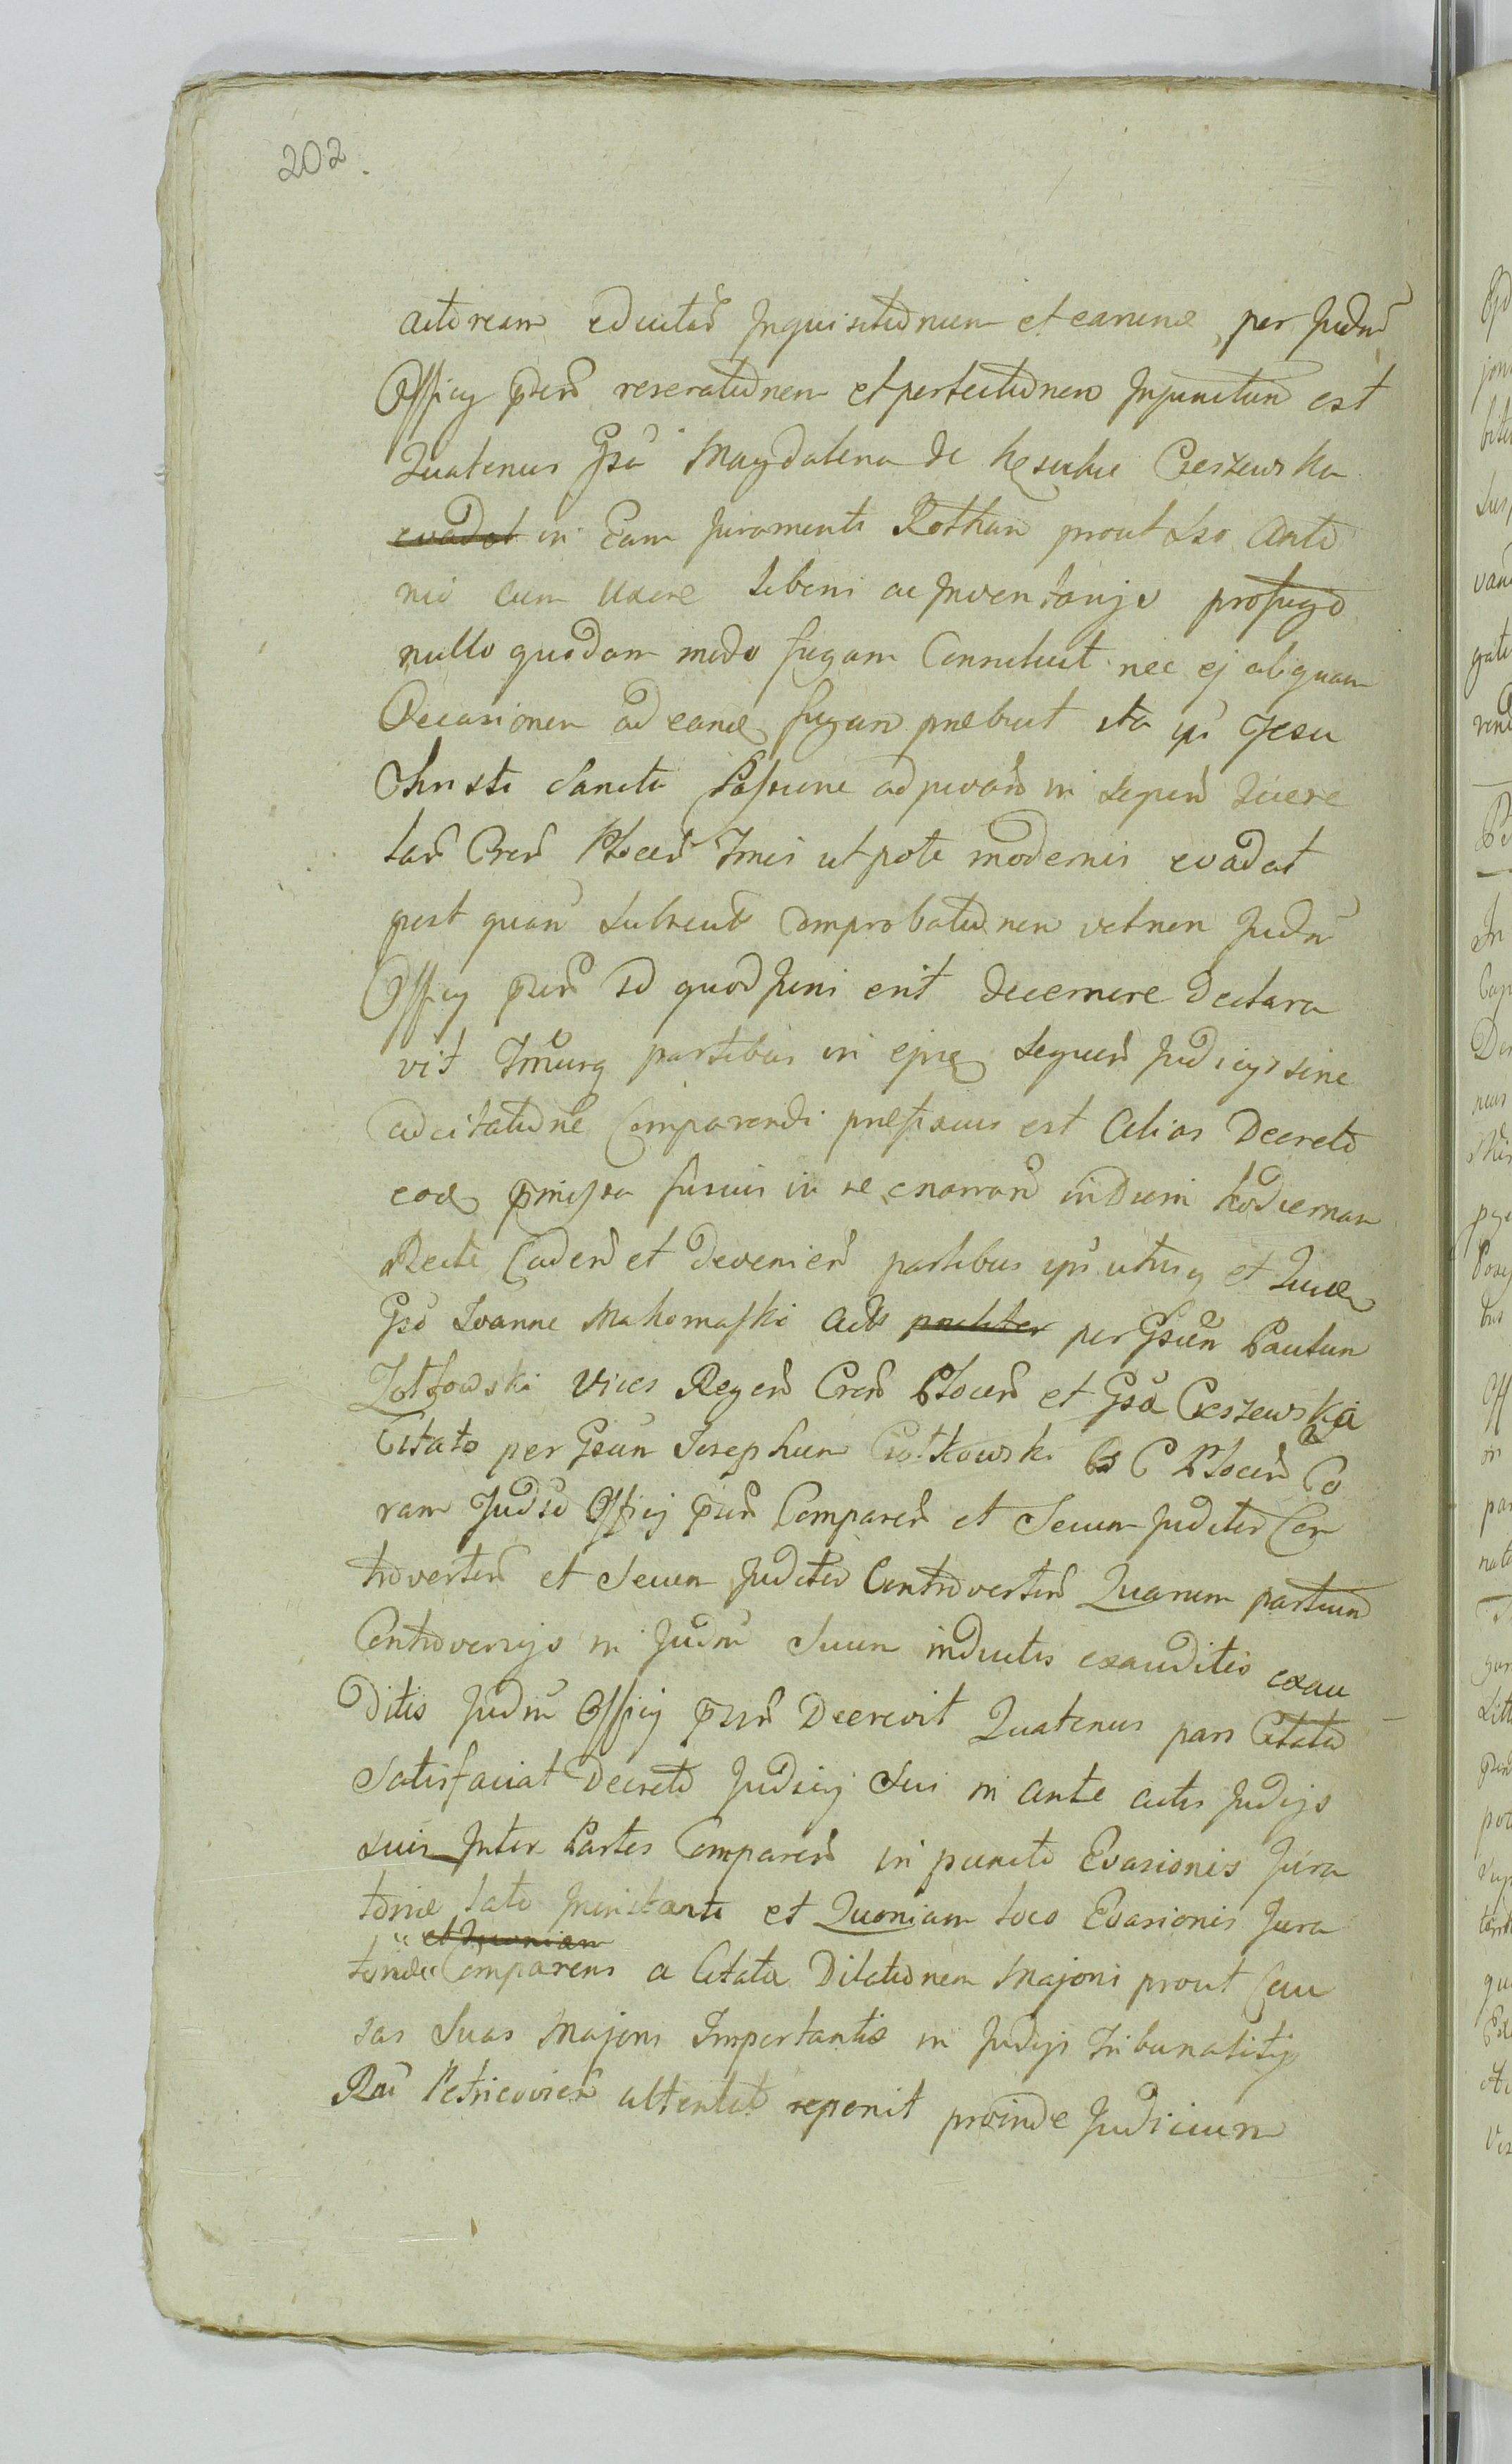 202.
actoream eductar Inquisitionum et earund per Judm
Officy psen reserationem et perlectionem Injunctum est
Quatenus Gsa Magdalena de Cieszewska
evadat in Eam Juramenti Rotham prout Lso Anto
nio cum Uxore Liberis ac Inventarijs profugo
nullo quodam modo fugam Consuluit nec ej aliquam
Occasionem ad eand fugam praebuit ita ips Jesu
Christi Sancta Passione adjuvan in sepen
lan Cren Plocen Tmis utpote modernis evadat
post quam subsecut comprobationem vel non Judm
Officy psen id quod Juris erit decernere declara
vit Tmumq partibus in ejusq sequen Judicijs sine
adcitatione Comparendi praefixus est Alias Decreto
eod pmissa fusius in se enarran in Diem hodiernam
Recte Caden et devenien partibus ips utrisq et
Gso Joanne Makomaski Acts per Gsum Paulum
Zołtowski Vices Regen Cren Plocen et Gsa Cieszewska
Citato per Gsum Josephum C Plocen Co
ram Judso Officij psen Comparen et Secum Juditer Con
troverten et Secum Juditer Controverten Quarum partium
Controversijs in Judm Suum inductis exauditis exau
ditis Judm Officij psen Decrevit Quatenus pars Citata
Satisfaciat Decreto Judicij Sui in ante actis Judijs
suis Inter Partes Comparen in puncto Evasionis Jura
toriae lato et Quoniam loco Evasionis Jura
et Quoniam
toriae Comparens a Citata Dilationem Majoris prout Cau
sas Suas Majoris Importantiae in Judijs Tribunalitijs
Petricovien reponit proinde Judicium